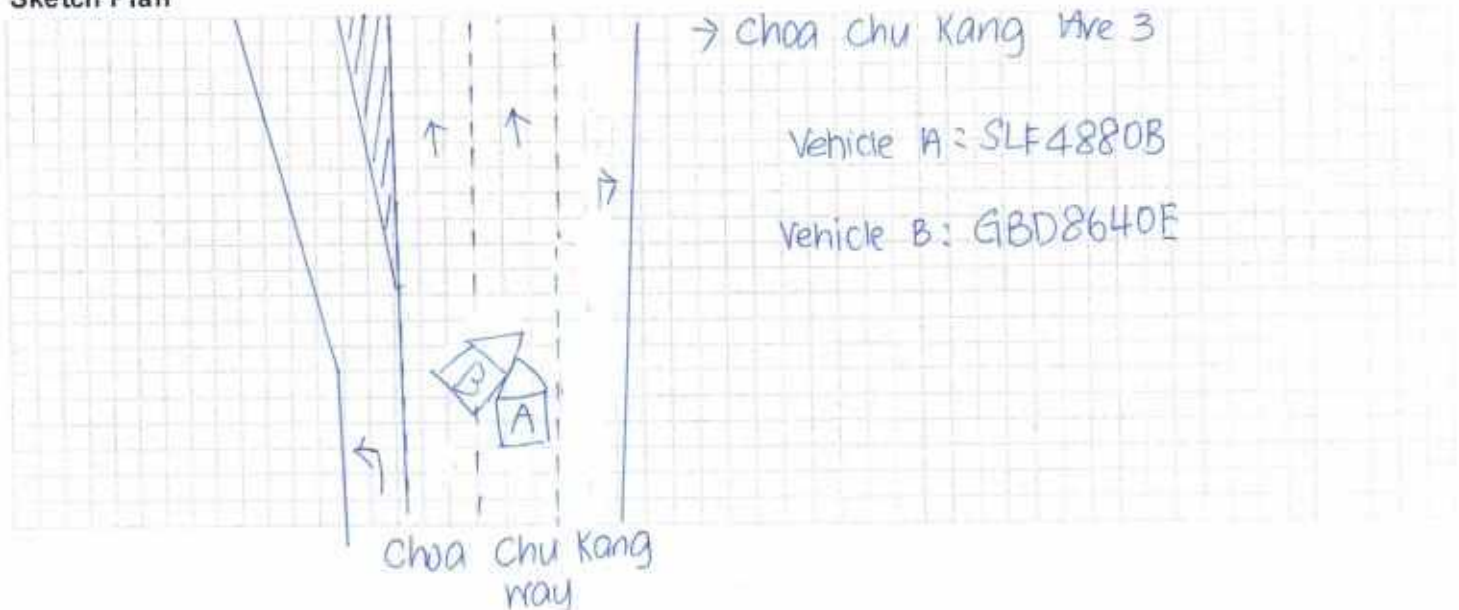 Sketch Plan
→ Choa Chu Kang Ave 3
Vehicle A: SLF4880B
Vehicle B: GBD8640E
B
A
Choa Chu Kang
way